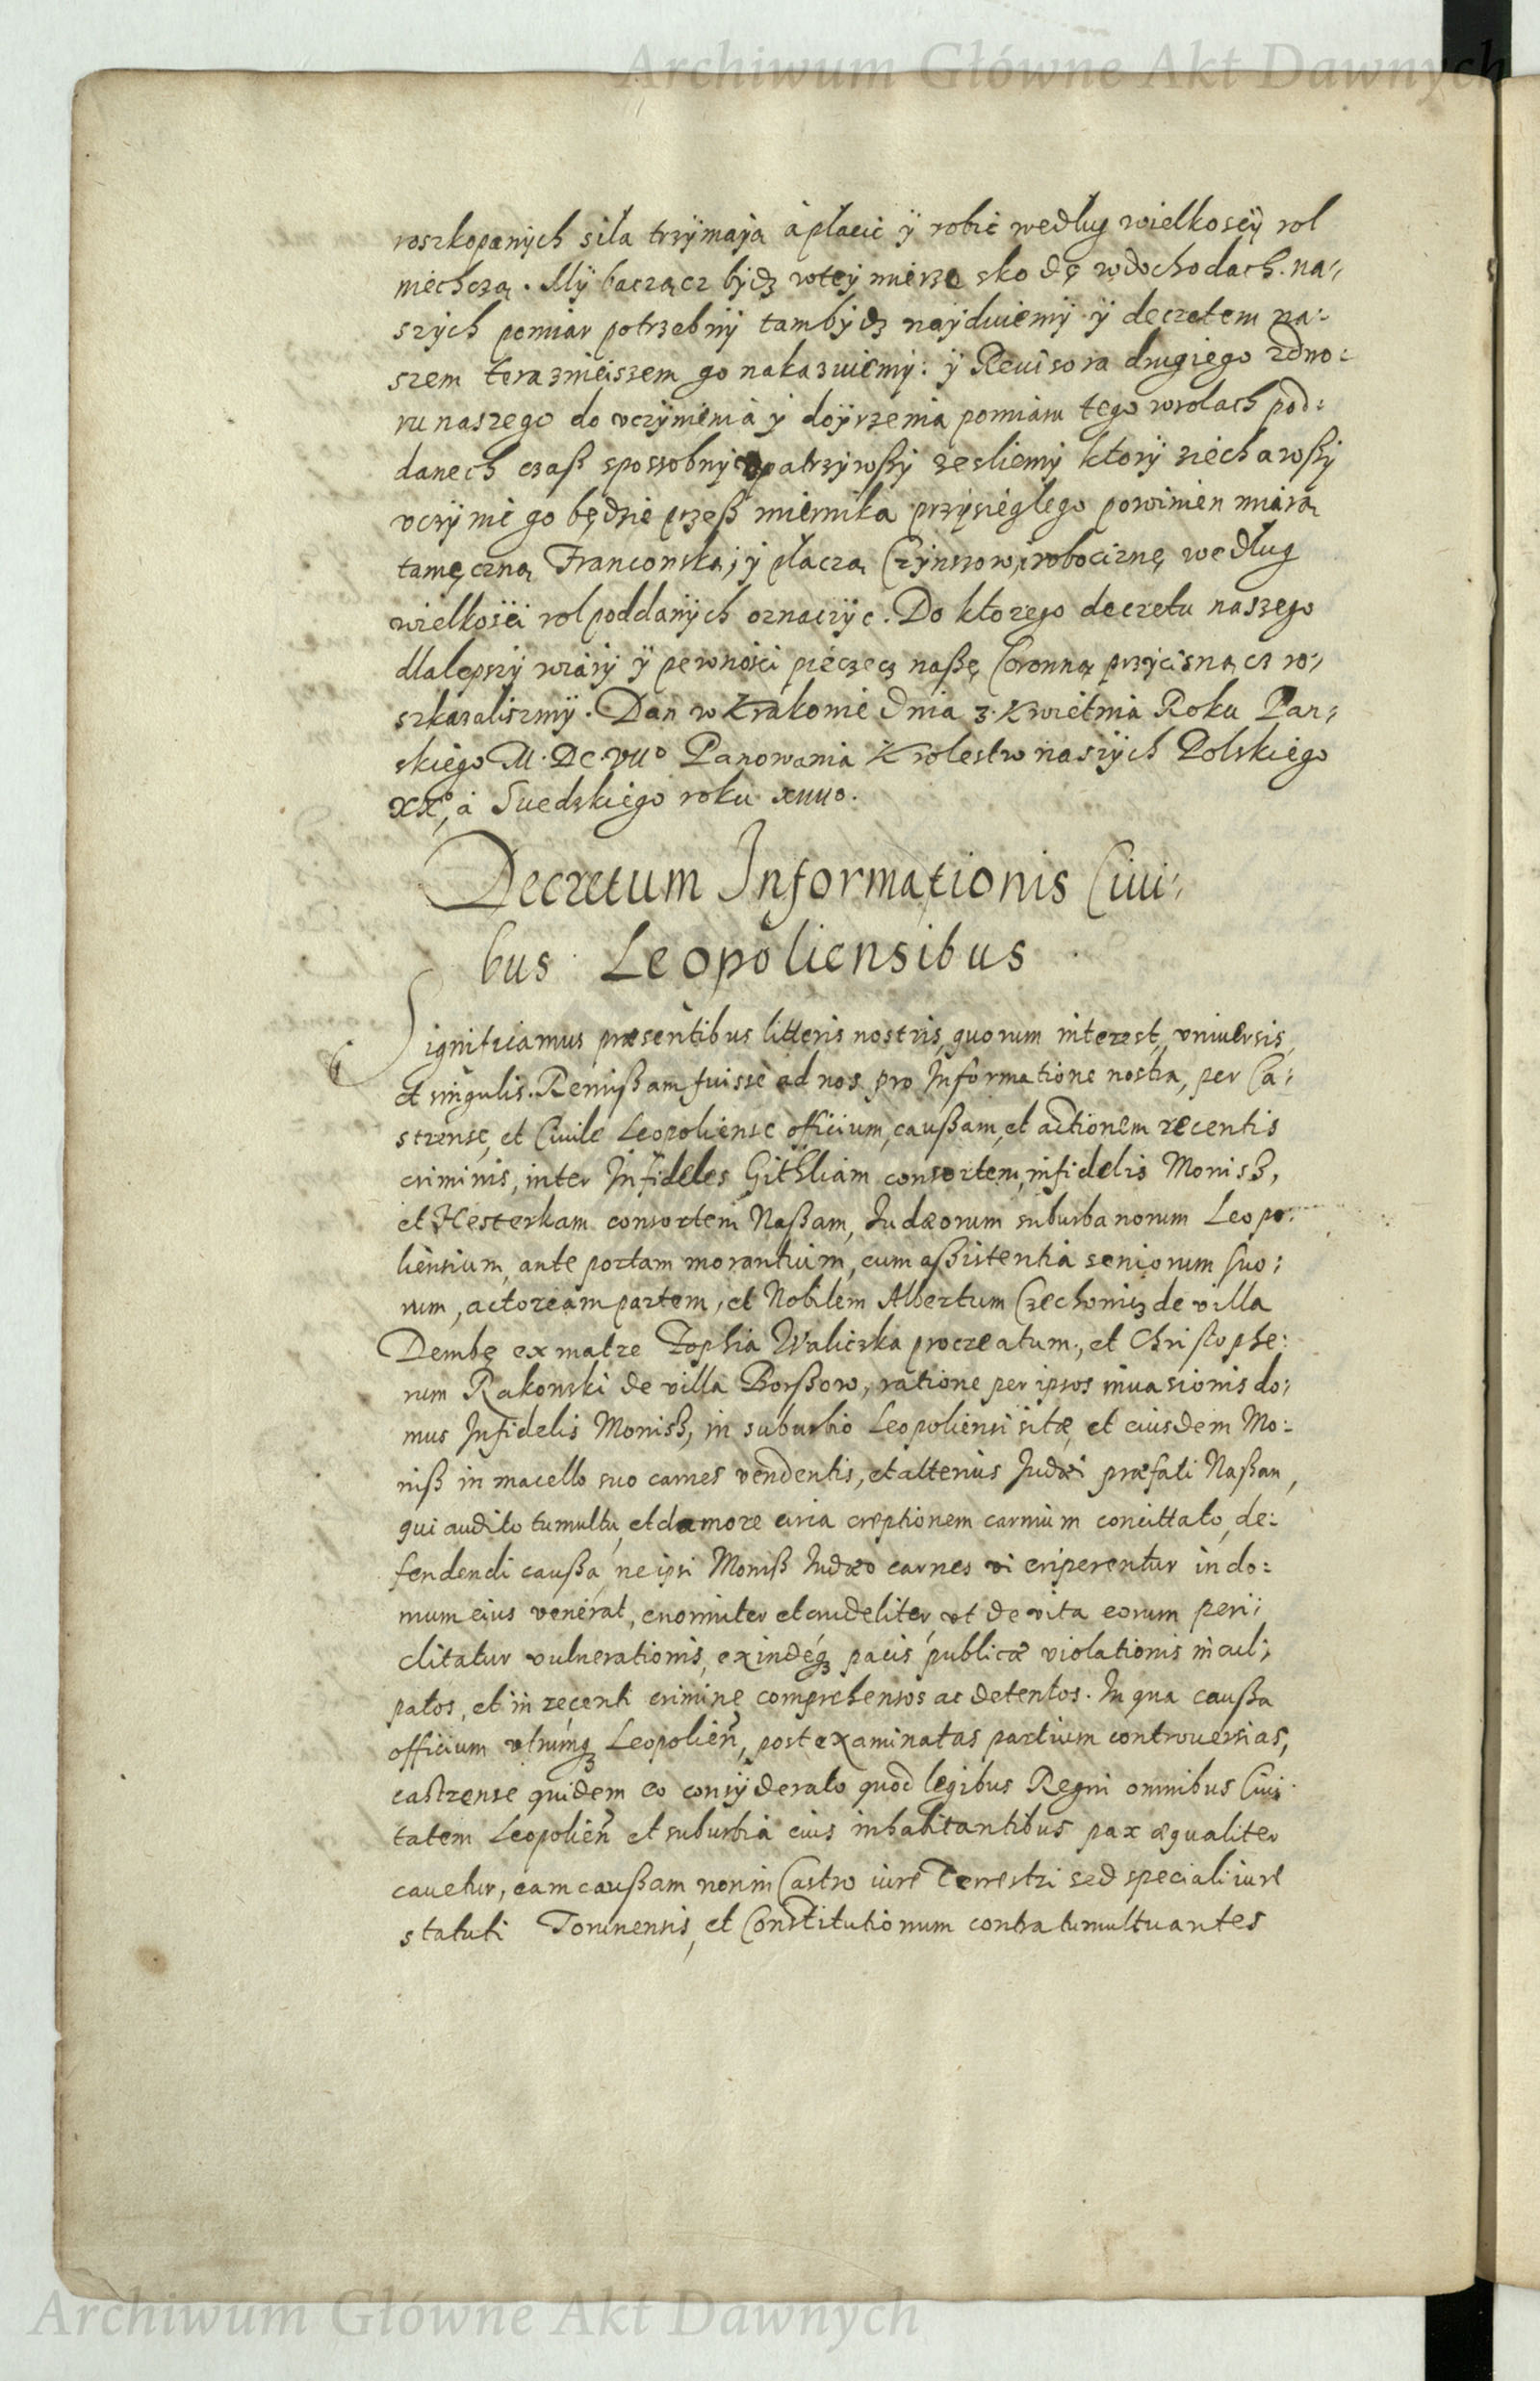 Archiwum Główne Akt Dawnych
roszkopanych siła trzÿmaią à płacić ÿ robić według wielkoscÿ rol
niechczą. Mÿ bacząc bÿdz wteÿ mierze skodę wdochodach na-
szÿch pomiar potrzebnÿ tam bÿdz naÿduiemÿ ÿ decretem na-
szem terazniéiszem go nakazuiemÿ: ÿ Reuisora drugiego zdwo-
ru naszego do vczÿnienia ÿ doÿrzenia pomiaru tego wrolach pod-
danech czaß sposobnÿ vpatrzÿwßÿ zesliemÿ ktorÿ ziechawßÿ
vczÿnić go będzie przeß miernika przÿsięgłego powinien miarą
tamęczną Franconską, ÿ płaczą Czÿnszow, robociznę według
wielkośći rol poddanÿch oznaczÿc. Do ktorego decretu naszego
dla lepszÿ wiarÿ ÿ pewnosci pieczęcz naßę Coronną przÿcisnącz ro-
szkazaliszmÿ. Dan w Krakowie dnia 3. Kwietnia Roku Pan-
skiego M.DC.VIIº Panowania Krolestw naszÿch Polskiego
XXº, à Suedskiego roku XIIIIº.
Decretum Informationis Ciui-
bus Leopoliensibus
Significamus præsentibus litteris nostris, quorum interest, vniuersis,
et singulis. Remißam fuisse ad nos pro Informatione nostra, per Ca-
strense, et Ciuile Leopoliense officium, caußam, et actionem recentis
criminis, inter Infideles Githliam consortem, infidelis Monisß,
et Hesterkam consortem Naßam, Judæorum suburbanorum Leopo-
liensium, ante portam morantium, cum aßistentia seniorum suo-
rum, actoream partem, et Nobilem Albertum Czechowicz de villa
Dembę ex matre Zophia Waliczka procreatum, et Christophe-
rum Rakowski de villa Borßow, ratione per ipsos inuasionis do-
mus Infidelis Monisß, in suburbio Leopoliensi sitæ, et eiusdem Mo-
niß in macello suo carnes vendentis, et alterius Judæi præfati Naßan,
qui audito tumultu, et clamore circa ereptionem carnium concittato, de-
fendendi caußa, ne ipsi Moniß Judæo carnes vi eriperentur in do-
mum eius venerat, enormiter et crudeliter, vt de vita eorum peri-
clitatur vulnerationis, exindeq3 pacis publicæ violationis incul-
patos, et in recenti crimine comprehensos ac detentos. In qua caußa
officium vtrumq3 Leopolien̄, post examinatas partium controuersias,
castrense quidem eo consÿderato quod legibus Regni omnibus Ciui-
tatem Leopolien̄ et suburbia eius inhabitantibus pax æqualiter
cauetur, eam caußam non in Castro iure Terrestri sed speciali iure
statuti Torunensis, et Constitutionum contra tumultuantes
Archiwum Główne Akt Dawnych